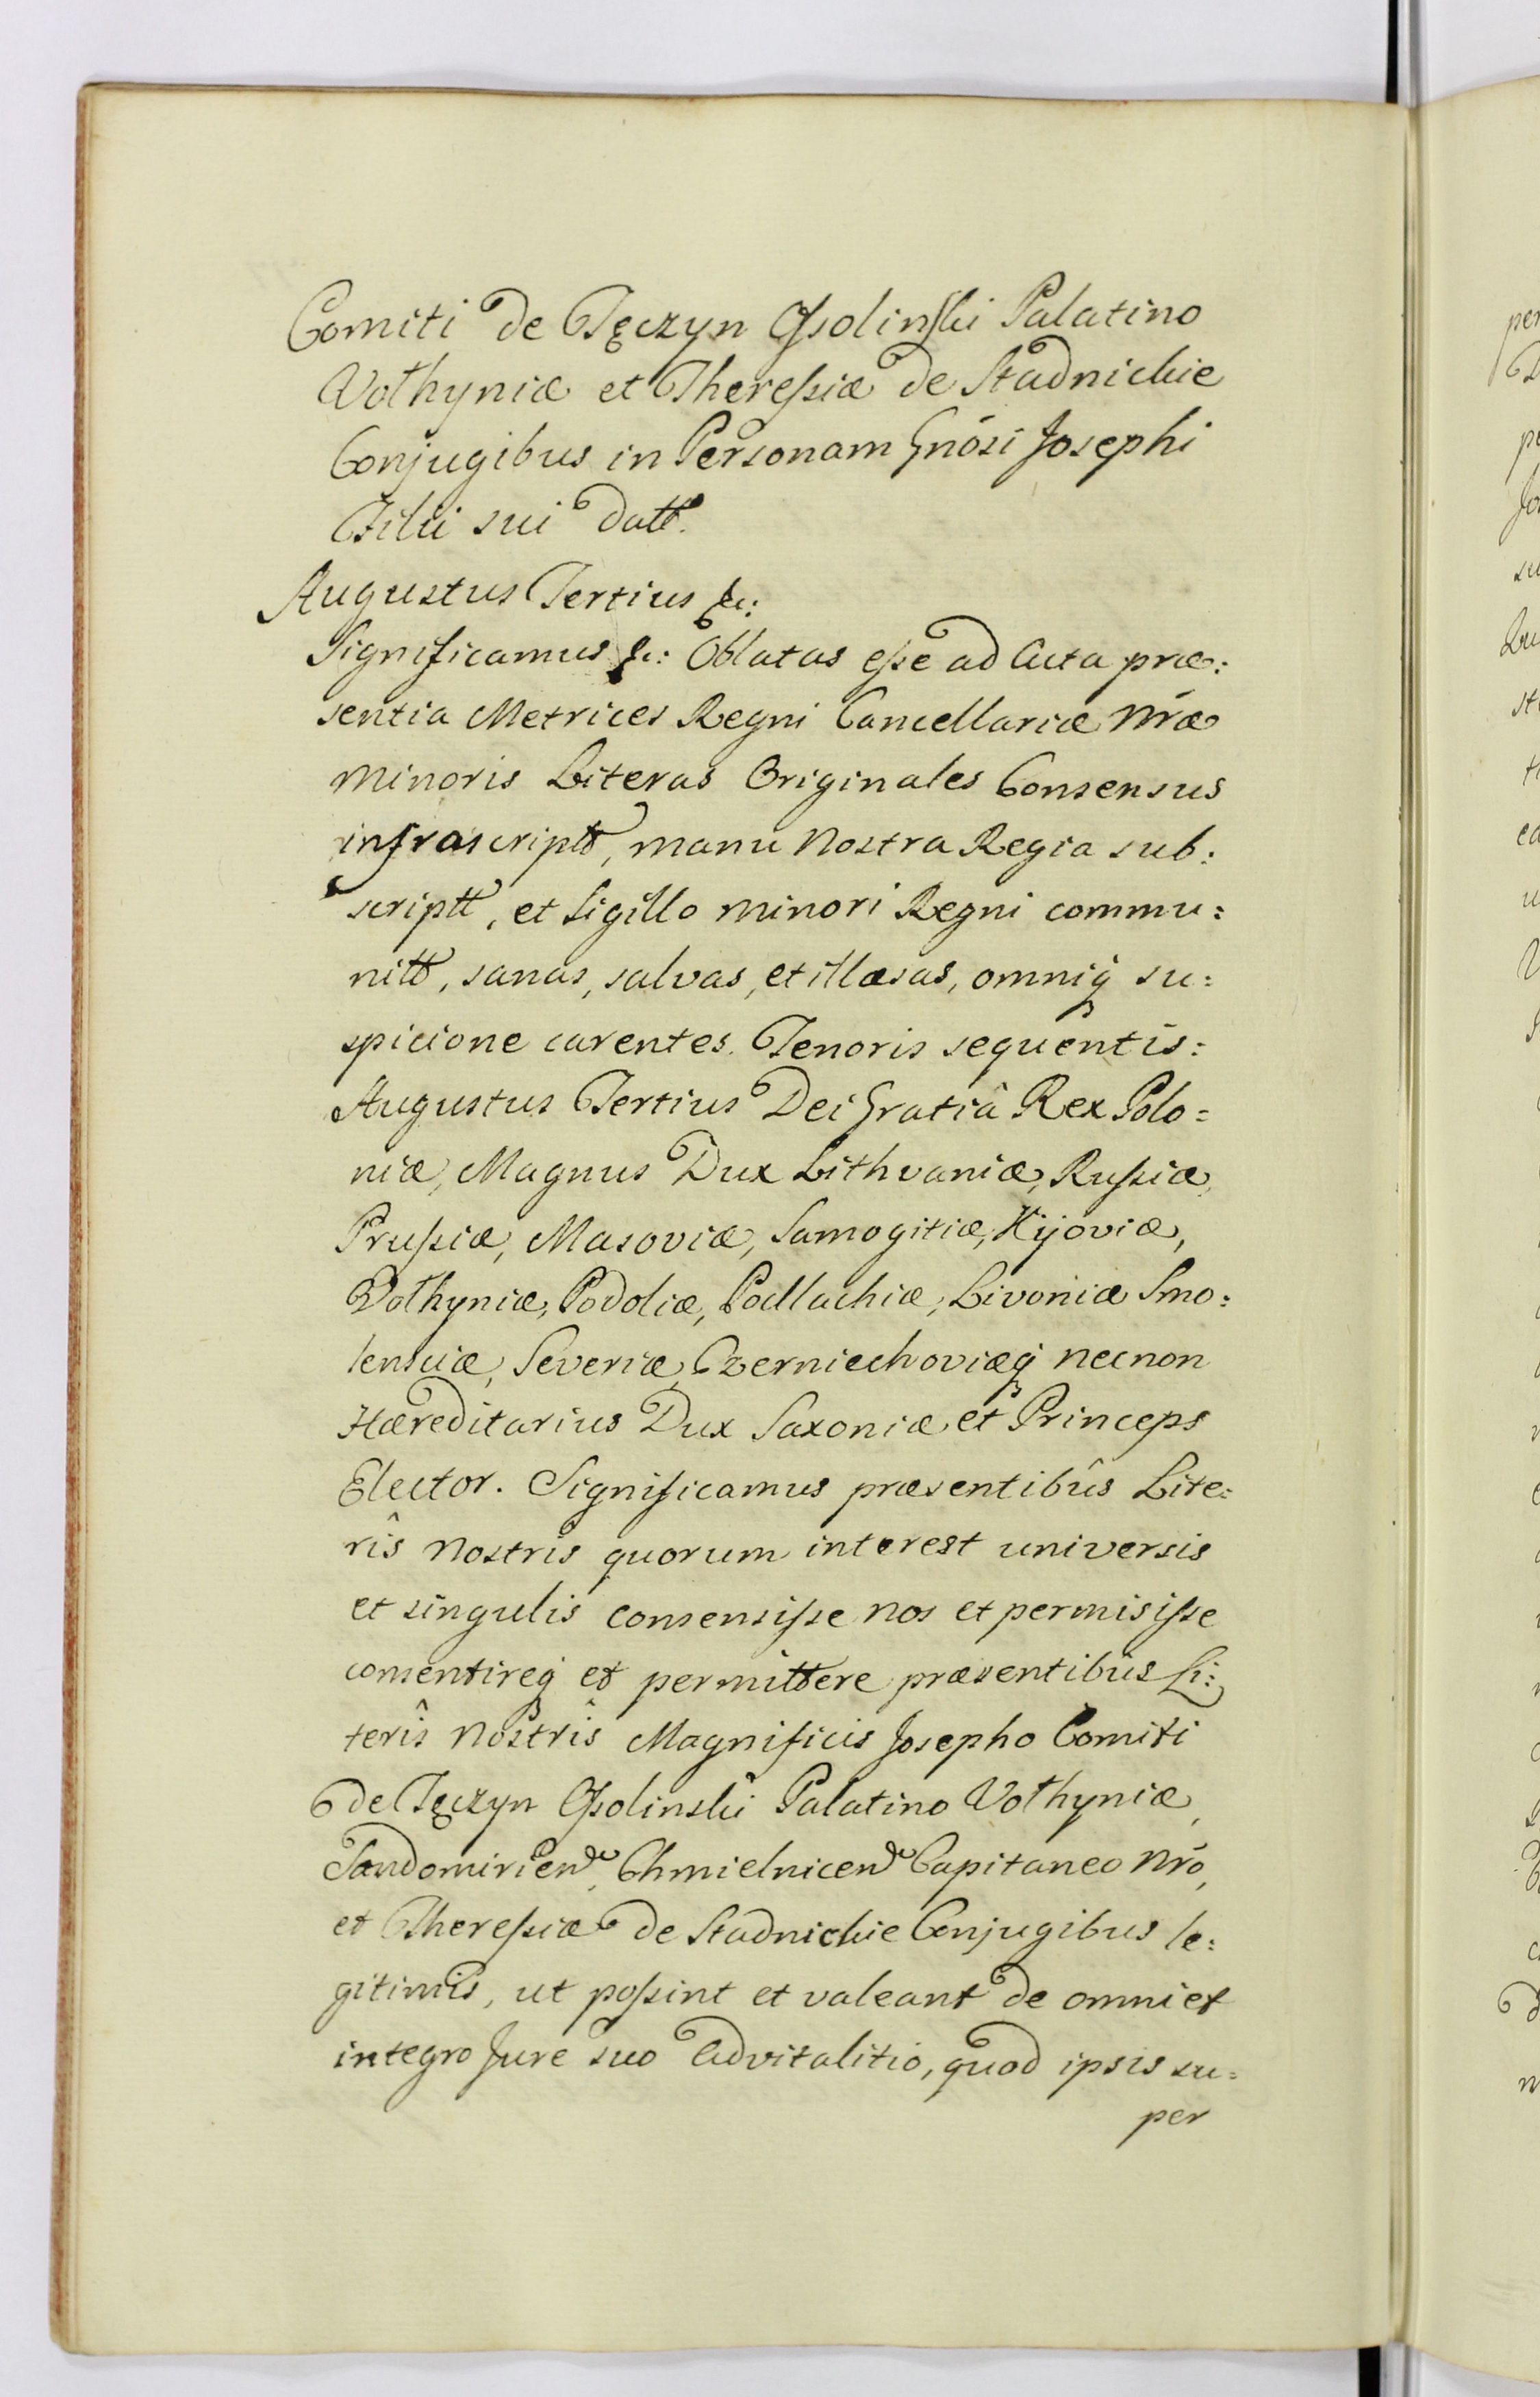 Comiti de Tęczyn Ossolinski Palatino
Volhyniæ et Theressiæ de Stadnickie
Conjugibus in Personam Gnōsi Josephi
Filii sui datt.
Augustus Tertius &c:
Significamus &c: Oblatas esse ad Acta præ:
sentia Metrices Regni Cancellariæ Nr̄æ
Minoris Literas Originales Consensus
infrascriptt, manu Nostra Regia sub:
scriptt, et Sigillo minori Regni commu:
nitt, sanas, salvas, et illæsas, omniq̷ su:
spicione carentes. Tenoris sequentis:
Augustus Tertius Dei Gratiâ Rex Polo=
niæ, Magnus Dux Lithvaniæ, Russiæ,
Prussiæ, Masoviæ, Samogitiæ, Kijoviæ,
Volhyniæ, Podoliæ, Podlachiæ, Livoniæ Smo:
lensciæ, Severiæ, Czerniechoviæq̷ necnon
Hæreditarius Dux Saxoniæ et Princeps
Elector. Significamus præsentibûs Lite:
rîs Nostris quorum interest universis
et singulis consensisse nos et permisisse
consentireq̷ et permittere præsentibûs Li:
terîs Nostrîs Magnificis Josepho Comiti
de Tęczyn Ossolinski Palatino Volhyniæ,
Sandomirien, Chmielnicen Capitaneo Nr̄o,
et Theressiæ de Stadnickie Conjugibus le:
gitimis, ut possint et valeant de omni et
integro Jure suo Advitalitio, quod ipsis su=
per